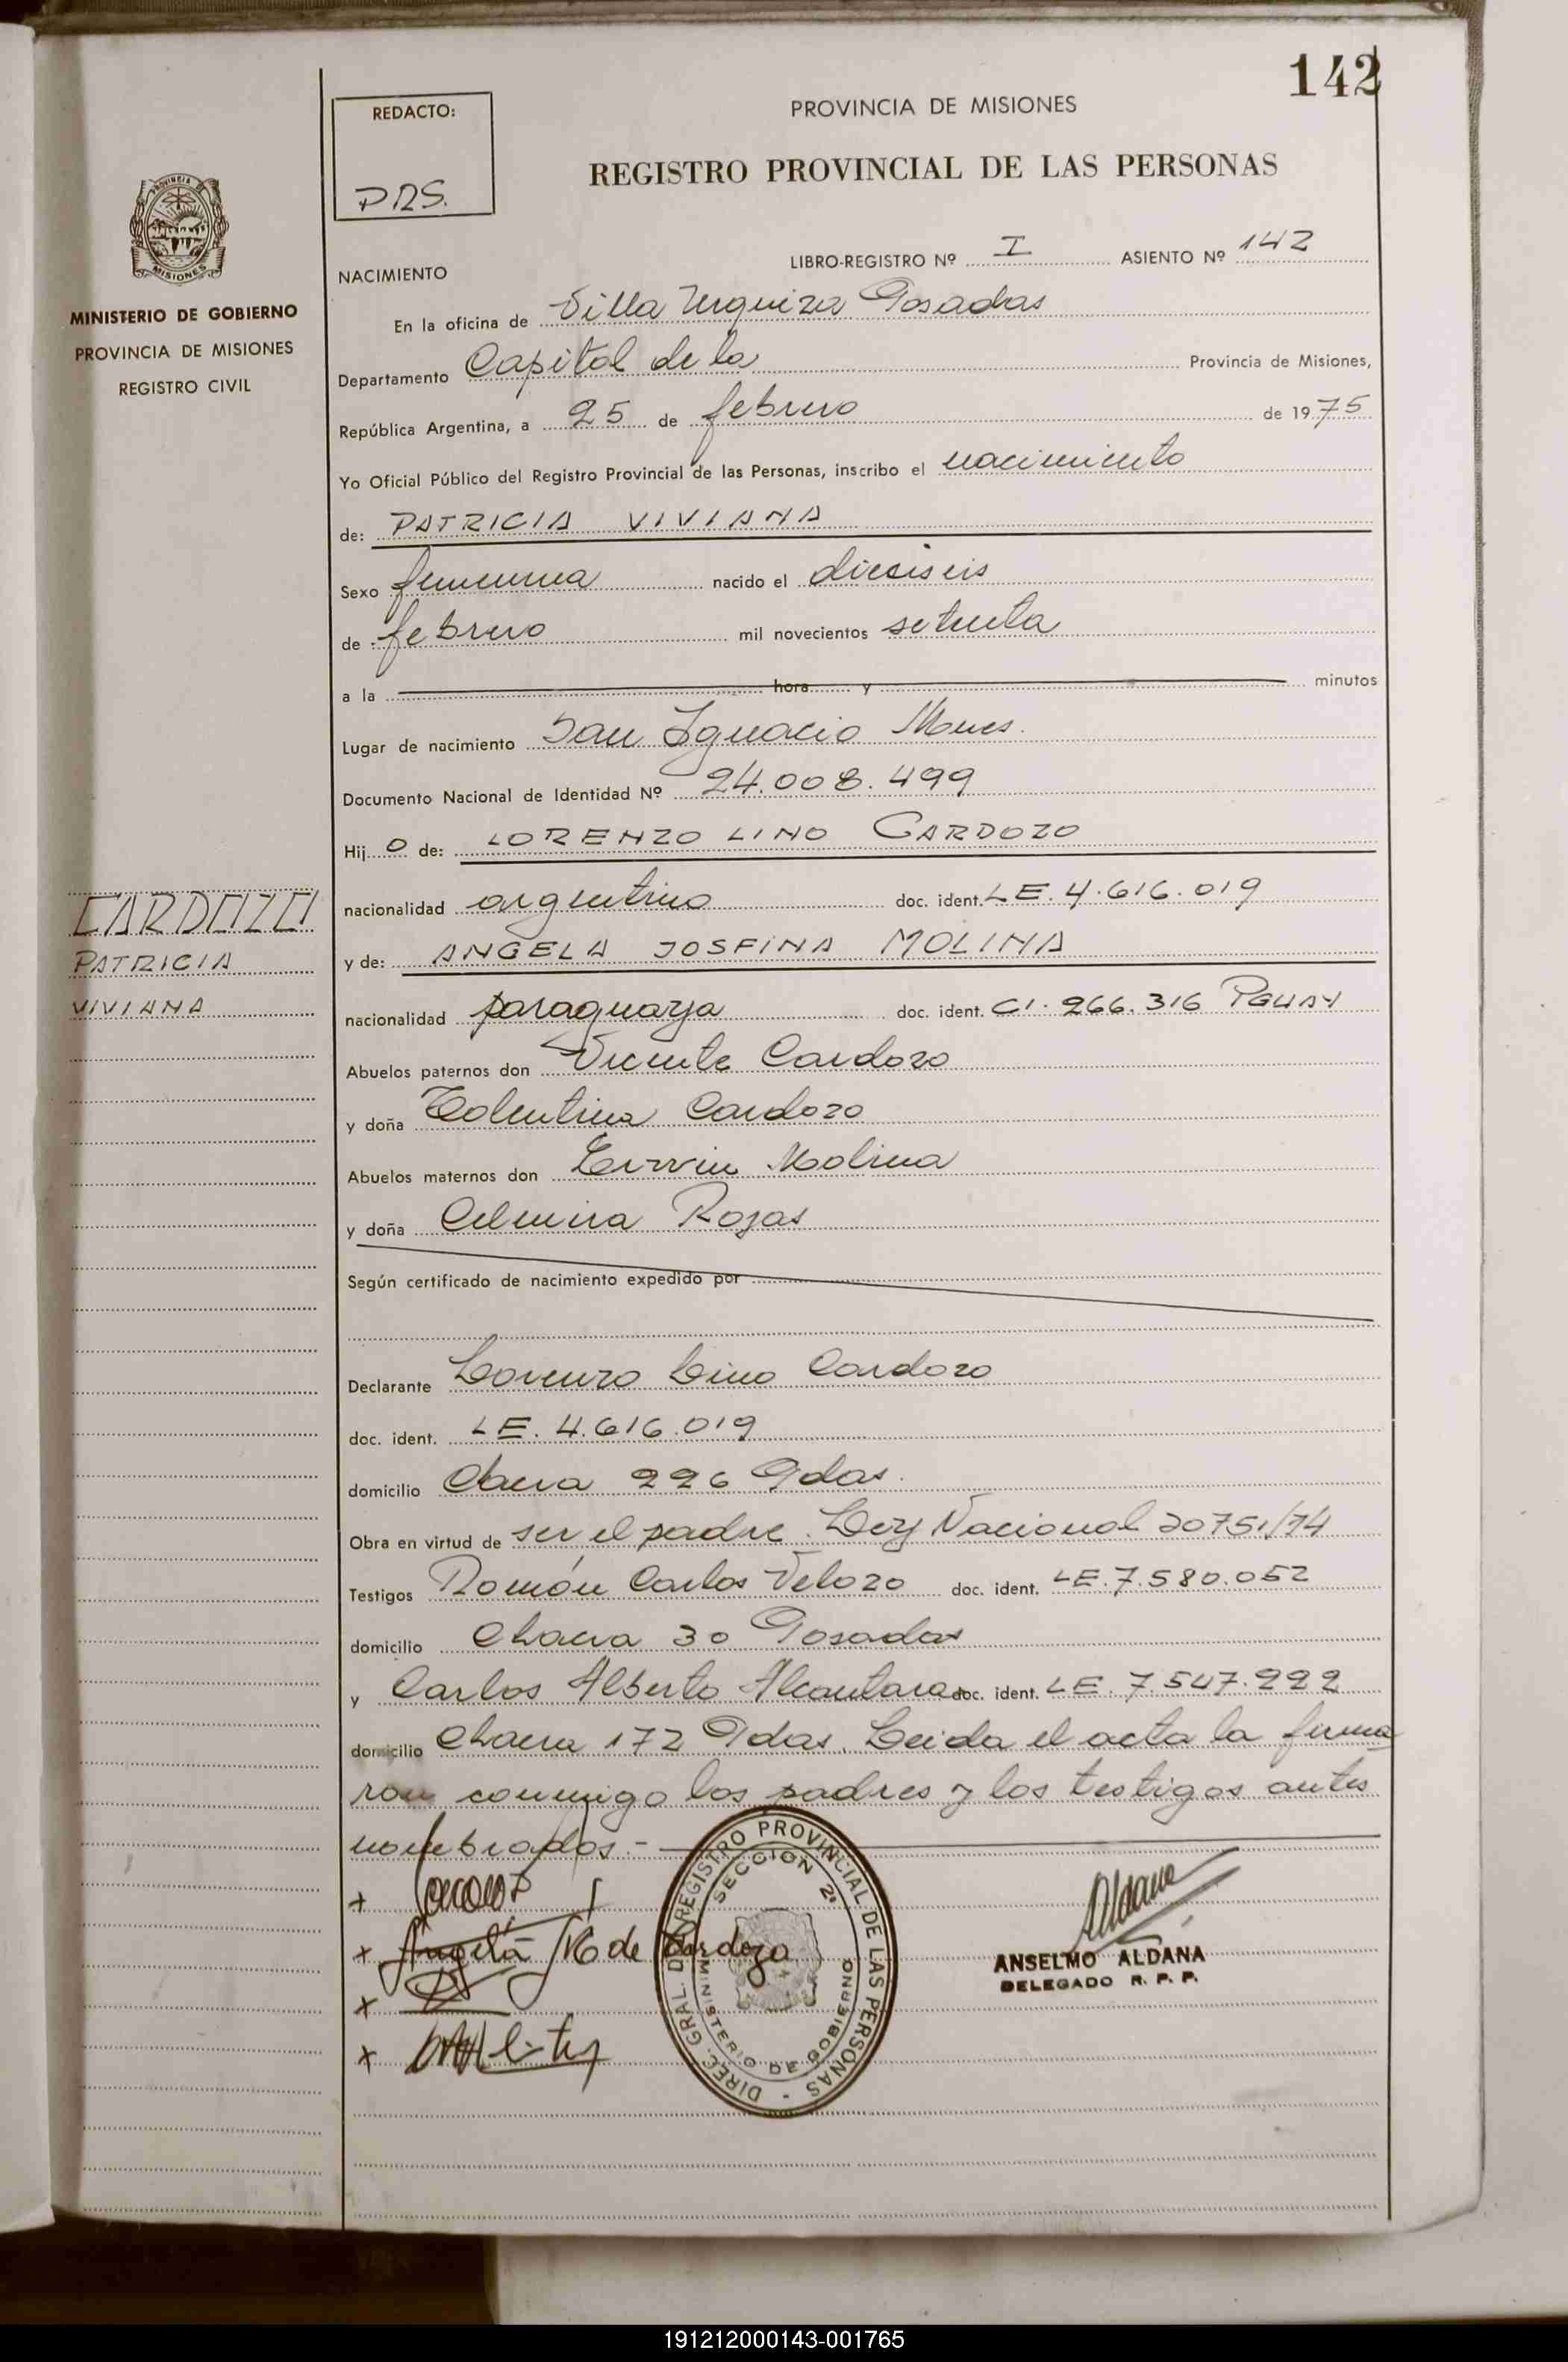 142
REDACTO:
PROVINCIA DE MISIONES
REGISTRO PROVINCIAL DE LAS PERSONAS
PROVINCIA DE MISIONES
MINISTERIO DE GOBIERNO
PROVINCIA DE MISIONES
REGISTRO CIVIL
LIBRO-REGISTRO Nº I ASIENTO Nº 142
NACIMIENTO
En la oficina de Villa Urquiza Posadas
Departamento Capital de la Provincia de Misiones,
República Argentina, a 25 de febrero de 1975
Yo Oficial Público del Registro Provincial de las Personas, inscribo el nacimiento
de: PATRICIA VIVIANA
Sexo femenina nacido el dieciseis
de febrero mil novecientos setenta
a la hora y minutos
Lugar de nacimiento San Ignacio Mnes.
Documento Nacional de Identidad Nº 24.008.499
Hij o de: LORENZO LINO CARDOZO
nacionalidad argentino doc. ident. LE. 4.616.019
y de: ANGELA JOSFINA MOLINA
nacionalidad paraguaya doc. ident. CI. 266.316 PGUAY
CARDOZO
PATRICIA
VIVIANA
Abuelos paternos don Vicente Cardozo
y doña Tolentina Cardozo
Abuelos maternos don Erwin Molina
y doña Celmira Rojas
Según certificado de nacimiento expedido por
Declarante Lorenzo Lino Cardozo
doc. ident. LE. 4.616.019
domicilio Chacra 226 Pdas.
Obra en virtud de ser el padre. Ley Nacional 20751/74
Testigos Román Carlos Velozo doc. ident. LE. 7.580.052
domicilio Chacra 30 Posadas
y Carlos Alberto Alcantara doc. ident. LE. 7.547.222
domicilio Chacra 172 Pdas. Leida el acta la firma
ron conmigo los padres y los testigos antes
nombrados.-
Angela M de Cardozo
DIREC. GRAL. DEL REGISTRO PROVINCIAL DE LAS PERSONAS -
SECCION 2ª
MINISTERIO DE GOBIERNO
Aldana
ANSELMO ALDANA
DELEGADO R. P. P.
191212000143-001765